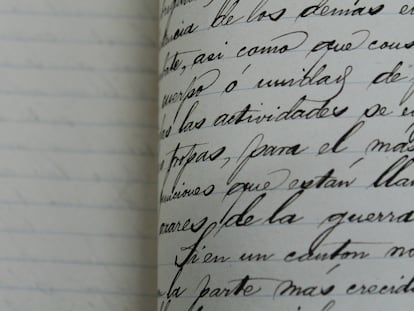 ncia de los demás e
bate, asi como que cons
cuerpo ó unidad de
las las actividades se e
tropas, para el más
nciones que están lla
zares de la guerra
Si en un cantón no
la parte más crecid